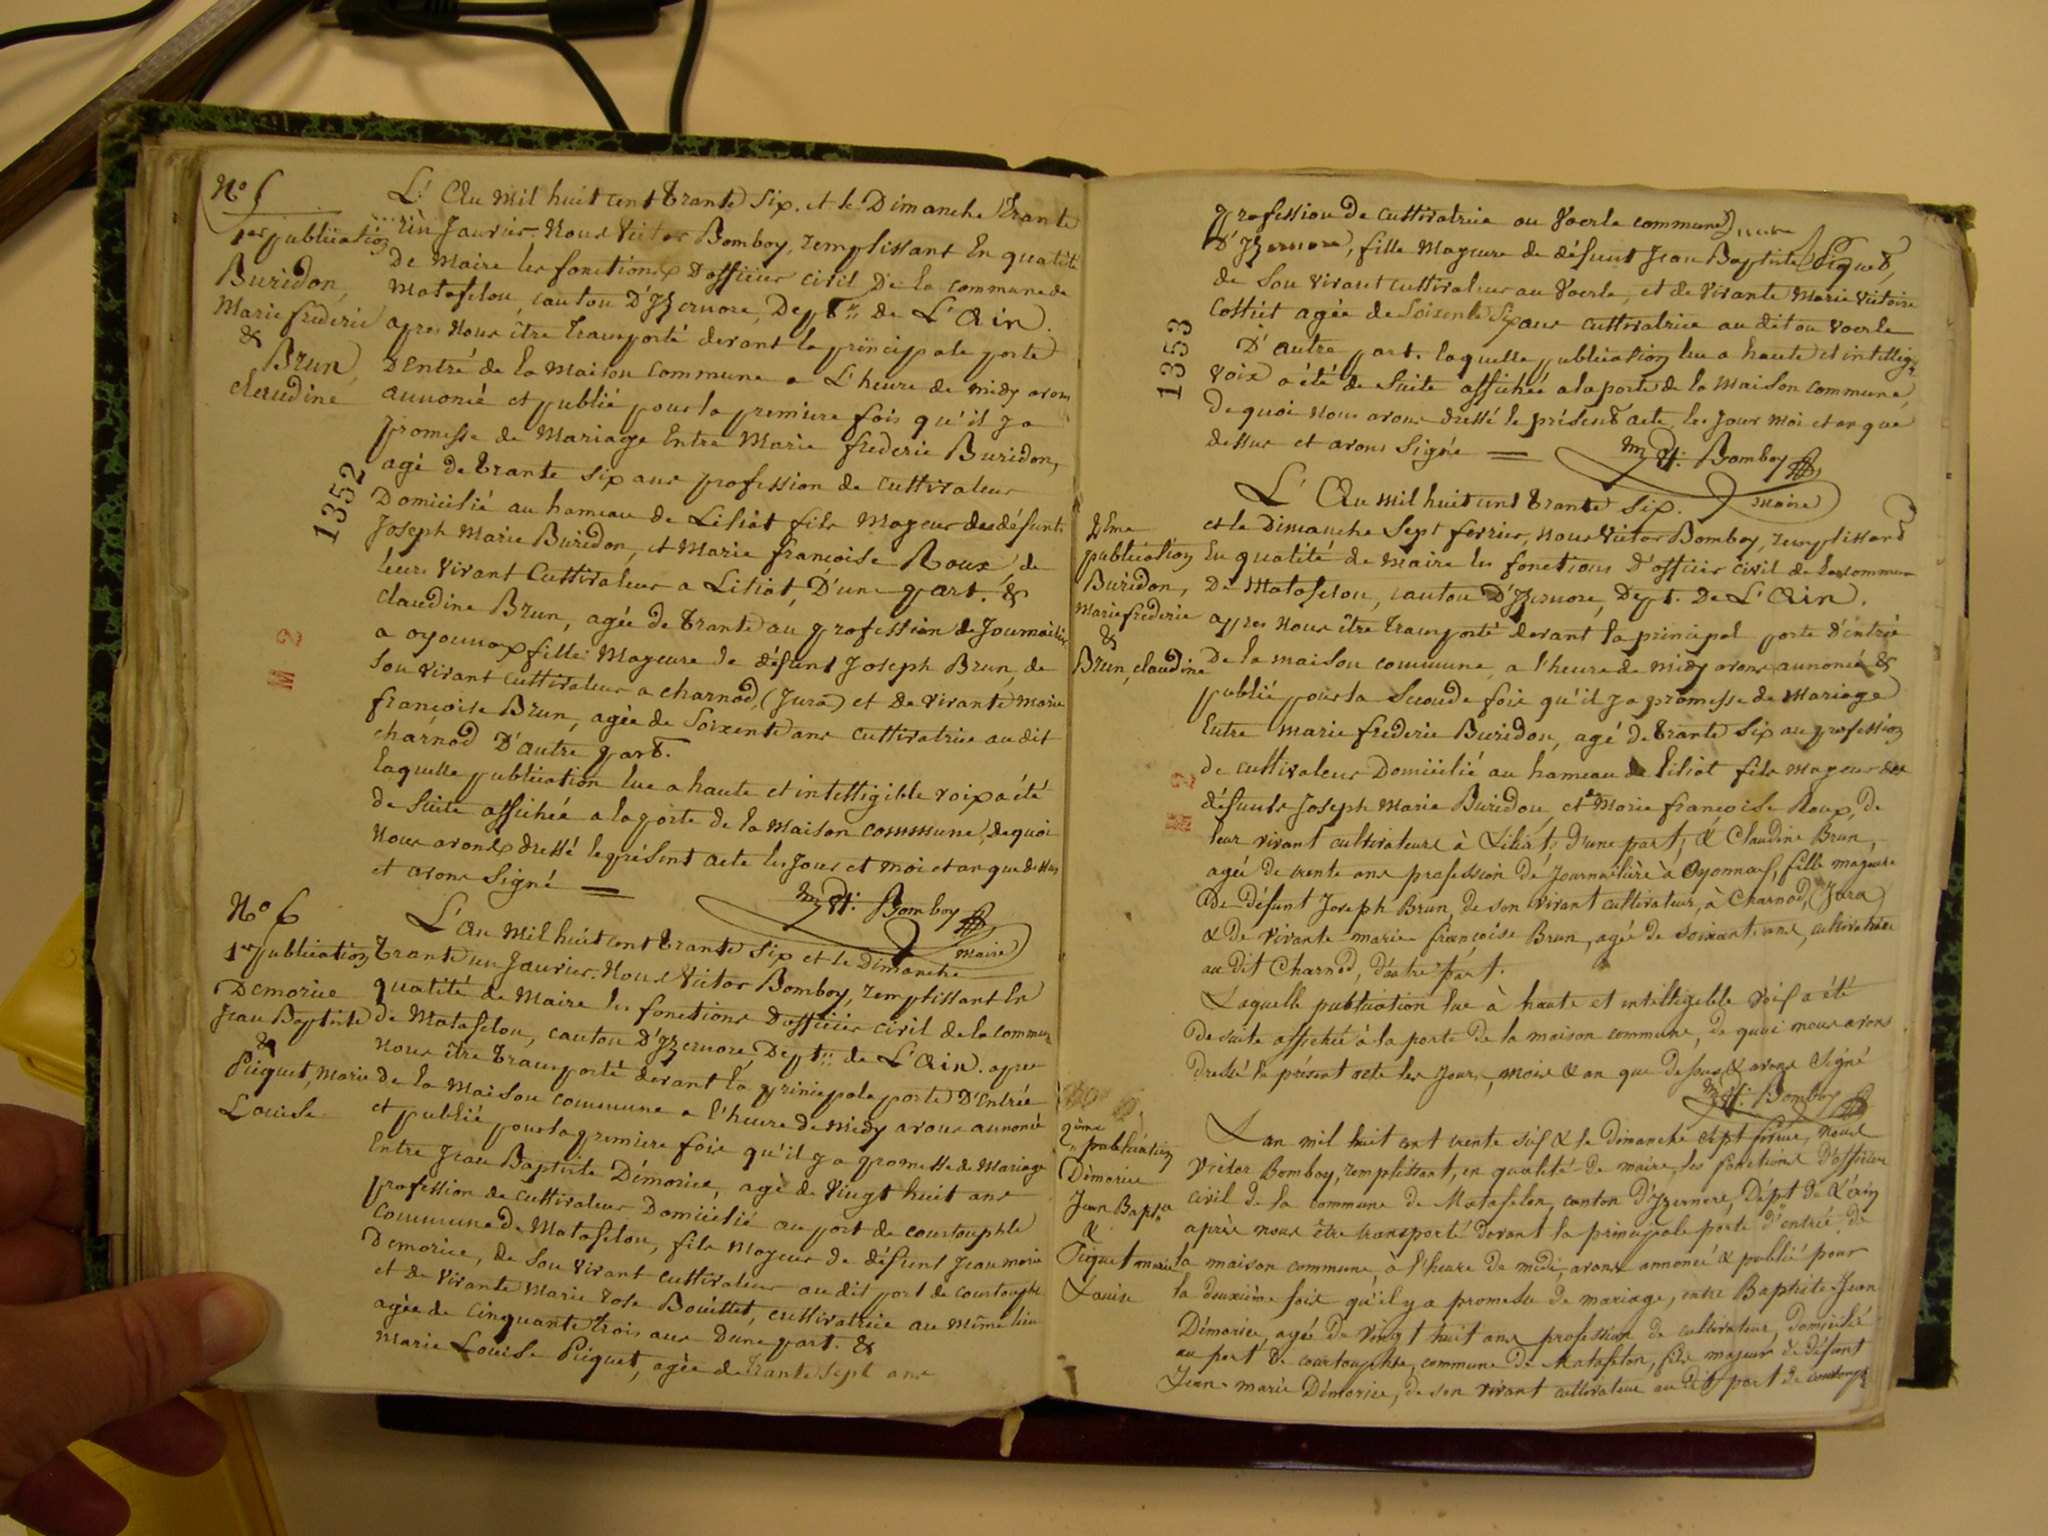 No 5
1ere publication
Buridon,
Marie frederic
&
Brun
claudine
L'An mil huit cent trante Six. et le Dimanche trante
un Janvier. Nous Victor Bomboy, remplissant En qualité
De Maire les fonctions D'officier civil De la commune de
Matafelou, canton D'Izernore, Dept. de L'Ain.
apres Nous être transporté devant la principale porte
D'entré de la Maison Commune a L'heure de midy avons
annoncé et publié pour la premiere fois qu'il y a
promesse de Mariage Entre Marie frederic Buridon,
agé de trante six ans profession de cultivateur
Domicilié au hameau de Liliat fils Majeur des défunts
Joseph Marie Buridon, et Marie françoise Roux, de
leurs vivant Cultivateur a Liliat, D'une part. &
claudine Brun, agée de trante an profession de Journalière
a oyonnax fille Majeure de défunt Joseph Brun, de
Son vivant cultivateur a charnod, (Jura) et de vivante Marie
françoise Brun, agée de Soixente ans cultivatrice au dit
charnod D'autre part.
laquelle publication lue a haute et intelligible voix a été
de Suite affichée a la porte de la Maison commune, de quoi
Nous avons dressé le présent acte les Jour et moi et an que dessus
et avons Signé
Bomboy
maire
1352
M 2
No 6
1ere publication
Demorice
Jean Baptiste
&
Piquet, Marie
Louise
L'An Mil huit cent trante Six et le Dimanche
trante un Janvier. Nous Victor Bomboy, remplissant En
qualité de Maire les fonctions D'officier civil de la commune
de Matafelou, canton D'Izernore, Dept. de L'Ain. apres
Nous être transporté devant la principale porte D'Entrée
de la Maison commune a l'heure de midy avons annoncé
et publié pour la premiere fois qu'il y a promesse de Mariage
Entre Jean Baptiste Démorice, agé de vingt huit ans
profession de cultivateur Domicilié au port de courtouphle
Commune de Matafelou, fils Majeur de défunt Jean marie
Demorice, de Son vivant cultivateur au dit port de courtouphle
et de vivante Marie rose Bouillet, cultivatrice au Même lieu
agée de Cinquante trois ans D'une part. &
Marie Louise Piquet, agée de trante Sept ans
profession de cultivatrice au Voerle commune
D'Izernore, fille Majeure de défunt Jean Baptiste Piquet,
de Son vivant cultivateur au Voerle, et de vivante Marie Victoire
agée de Soisente Six ans cultivatrice au dit ou voerle
D'autre part. laquelle publication lue a haute et intellig.
voix a été de Suite affichée a la porte de la Maison commune,
De quoi Nous avons dressé le présent acte les Jour moi et an que
dessus et avons Signé
Bomboy
maire
1353
2ème
publication
Buridon,
Marie frederic
&
Brun, claudine
L'An mil huit cent trante Six.
et le Dimanche Sept fevrier, nous Victor Bomboy, remplissant
En qualité de Maire les fonctions D'officier civil de la commune
De Matafelou, canton D'Izernore, Dept. De L'Ain.
apres Nous être transporté devant la principal porte d'entrée
De la maison commune, a l'heure de midy avons annoncé &
publié pour la Seconde fois qu'il y a promesse de Mariage
Entre marie frederic Buridon, agé de trante Six an profession
de cultivateur Domicilié au hameau de Liliat fils Majeur des
défunts Joseph Marie Buridon, et de Marie françoise Roux, de
leur vivant cultivateurs à Liliat, d'une part, & Claudine Brun,
agée de trente ans profession de Journalière à Oyonnax, fille majeure
De défunt Joseph Brun, de son vivant cultivateur, à Charnod, (Jura)
& De vivante marie françoise Brun, agée de soixante ans, cultivatrice
au dit Charnod, d'autre part.
Laquelle publication lue à haute et intelligible voix a été
De suite affichée à la porte de la maison commune, de quoi nous avons
dressé le présent acte les Jour, mois & an que Dessus & avons Signé
Bomboy
M 2
2ème
publication
Démorice
Jean Bapte
&
Piquet marie
Louise
L'an mil huit cent trente six & le dimanche sept février, Nous
Victor Bomboy, remplissant, en qualité de maire, les fonctions d'officier
civil de la commune de Matafelon, canton d'Izernore, Dépt de l'Ain
après nous être transporté devant la principale porte d'entrée de
la maison commune, à l'heure de midi, avons annoncé & publié pour
la deuxième fois qu'il y a promesse de mariage, entre Baptiste Jean
Démorice, agée De vingt huit ans profession de cultivateur, domicilié
au port de courtouphle, commune De Matafelon, fils majeur de défunt
Jean-marie Démorice, de son vivant cultivateur au dit port de courtouph